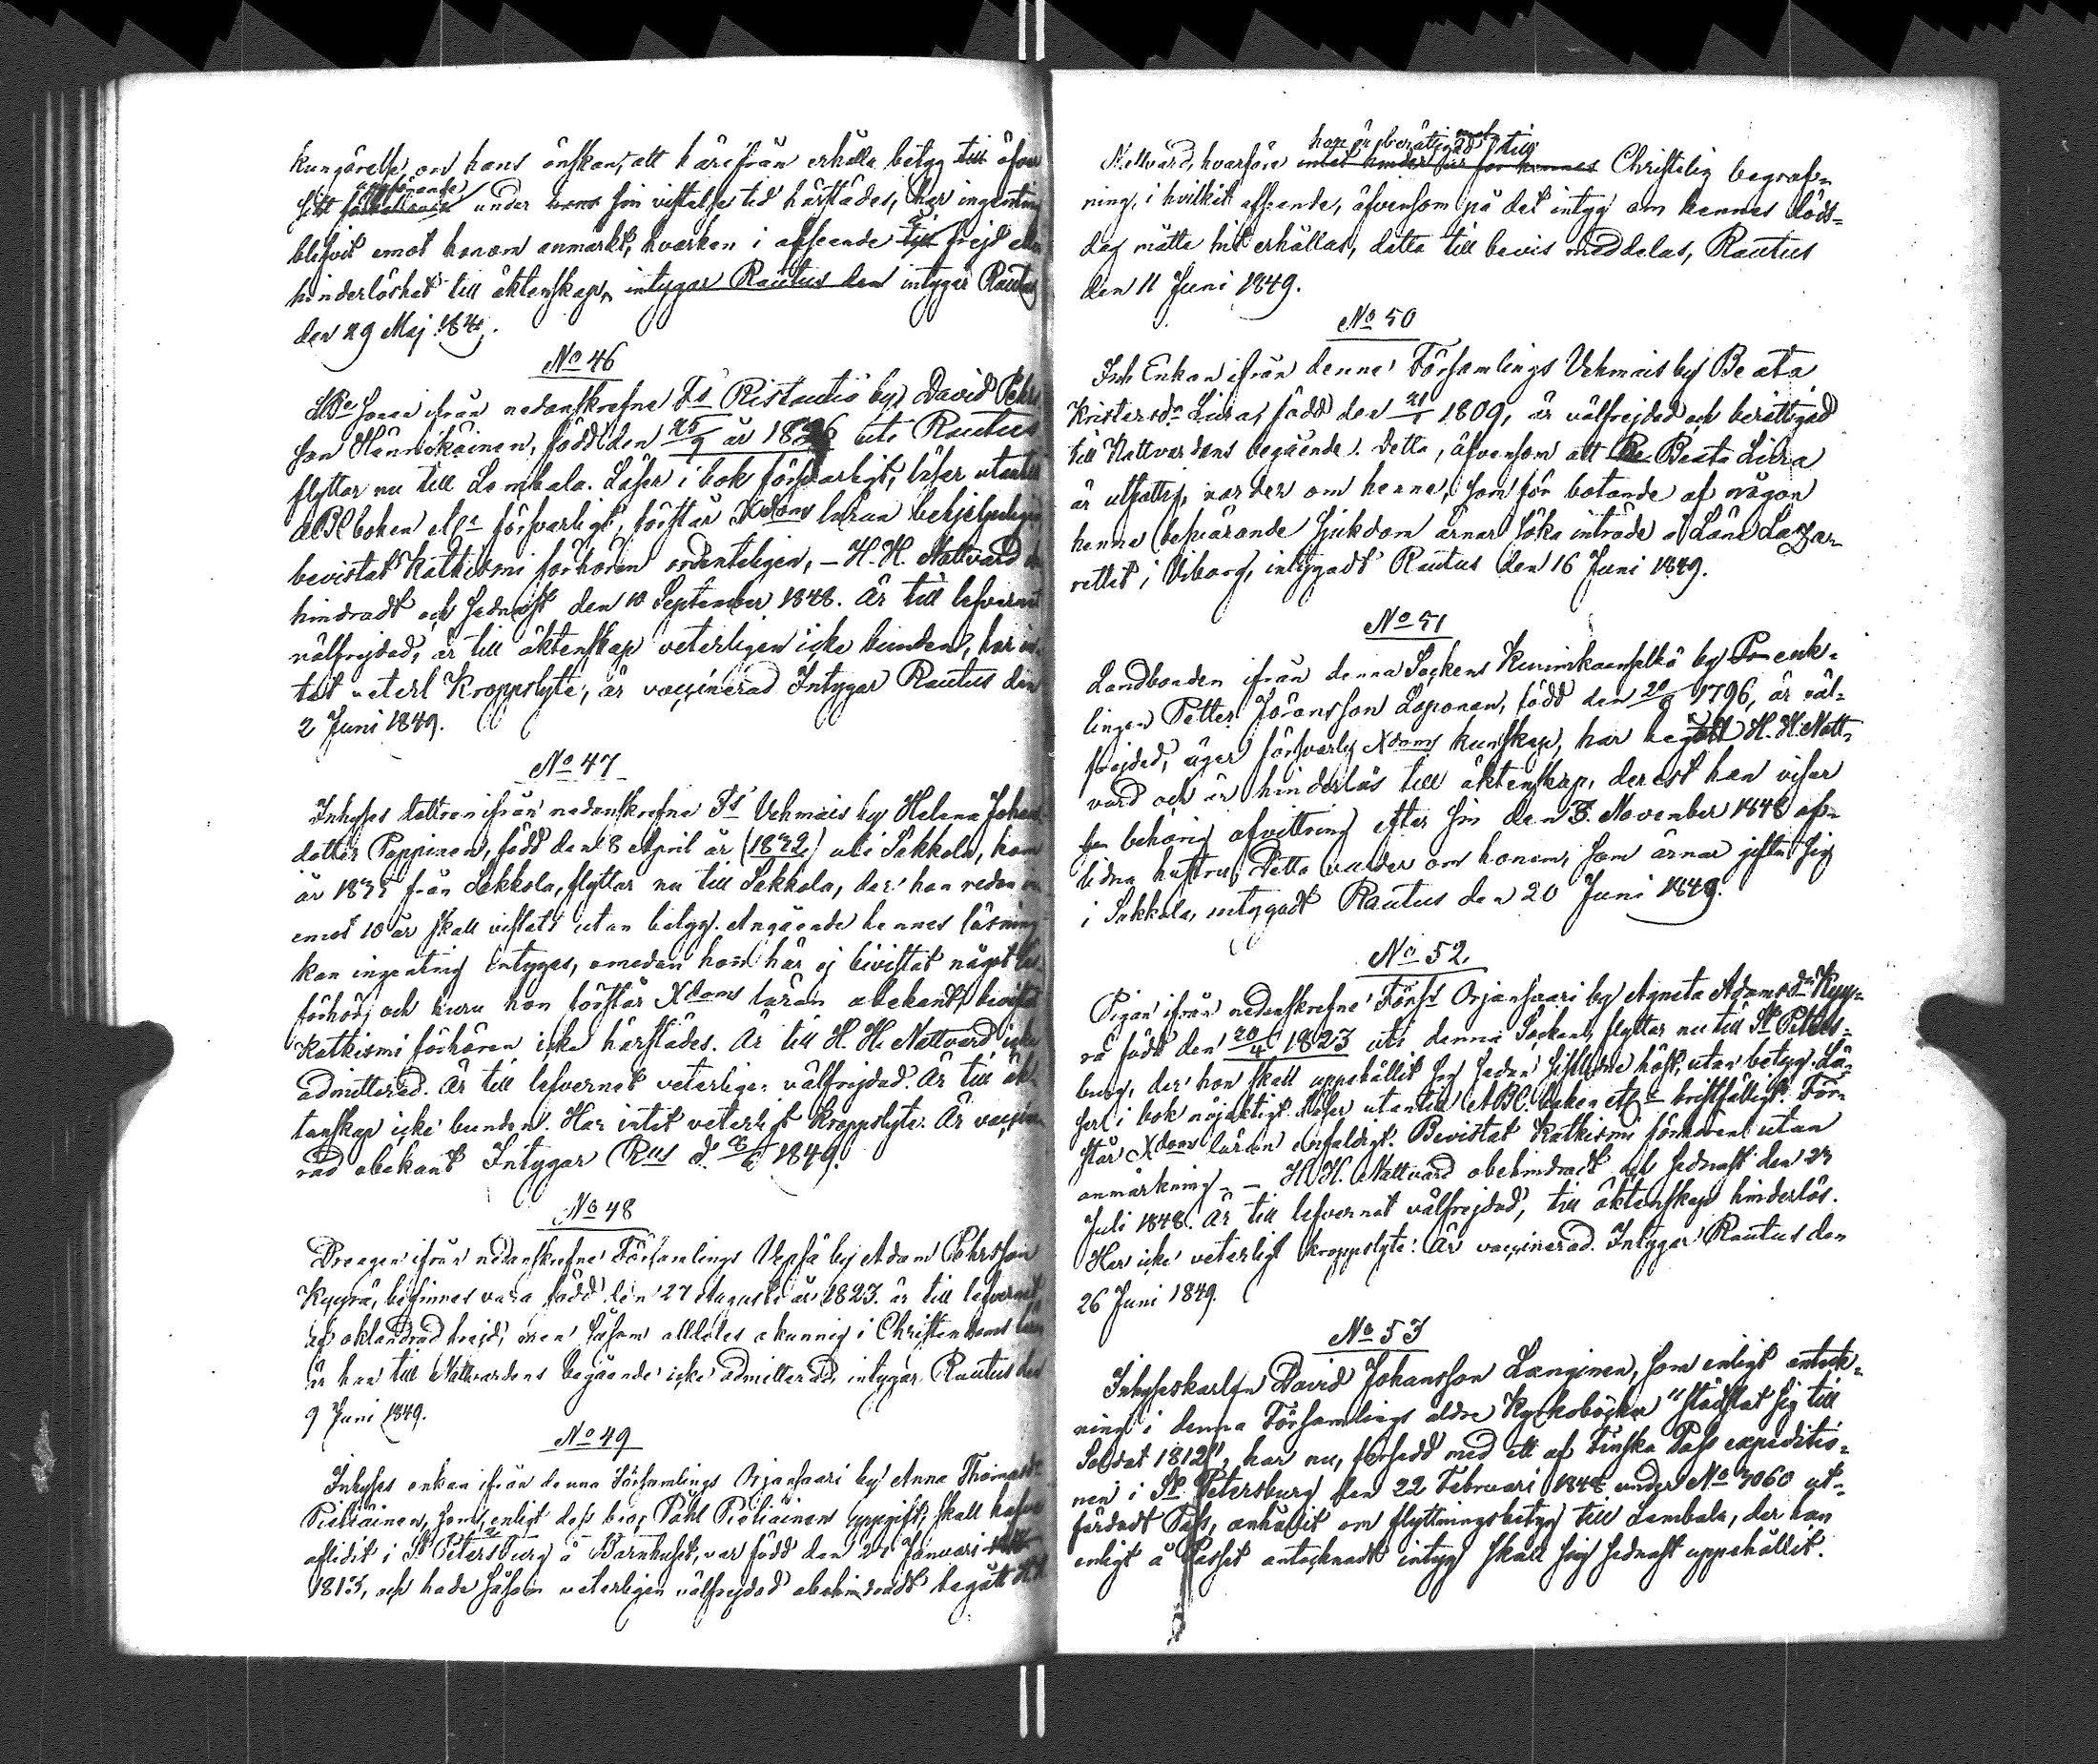 kungörelse om hans önskan, att härifrån erhålla betyg till öfver
sitt förhållande uppförande under hans sin vistelse tid härstädes, har ingenting
blifvit emot honom anmärkt, hvarken i afseende till å frejd eller
hinderlöshet till äktenskap, intygar Rautus den intygar Rautus
den 29 Maj 1849.
No 46
sonen ifrån nedanskrefne Fs Ristautio by, David Pehrs
son Hännikäinen, född den 25/9 år 1826 uti Rautus
flyttar nu till Lembala. Läser i bok försvarligt, läser utantill
ABC boken etc försvarligt, förstår Xdoms läran behjelpligen
bevistat Katkismi förhören ordenteligen, – H. H. Nattvard o
hindradt och sednast den 10 September 1848. Är till lefvernet
välfrejdad, är till äktenskap veterligen icke bunden, har in
tet veterl Kroppslyte, är vaccinerad Intygar Rautus den
2 Juni 1849.
No 47
Inhyses dottren ifrån nedanskrefne Fs Vehmais by Helena Johans
dotter Pappinen, född den 8 April år (1832) uti Sakkola, kom
år 1835 från Sakkola, flyttar nu till Sakkola, der hon redan
emot 10 år skall vistats utan betyg. Angående hennes läsning
kan ingenting intygas, emedan hon här ej bivistat något läs
förhör, och huru hon förstår Xdoms läran obekant, bevistat
Katkismi förhören icke härstädes. Är till H. H. Nattvard icke
admitterad. Är till lefvernet veterligen välfrejdad. Är till äk
tenskap icke bunden. Har intet veterligt Kroppslyte. Är vaccine
rad obekant Intygar Rus d. 8/6 1849.
No 48
Drengen ifrån nedanskrefne Församlings Vepsä by Adam Pehrsson
Kyyrä, befinnes vara född den 27 Augusti år 1823. är till lefvernet
af oklandrad frejd, men såsom alldeles okunnig i Christendoms
är han till Nattvardens begående icke admitterad, intygar Rautus den
9 Juni 1849.
No 49
Inhyses enkan ifrån denna Församlings Orjansaari by Anna Thomasdr
Pieliäinen, som, enligt dess bror Påhl Pieliäinens uppgift, skall hafva
aflidit i St Petersburg å Barnhuset, var född den 21 Januari
1813, och hade såsom veterligen välfrejdad obehindradt begått H.H.
Nattvard, hvarföre intet hinder är för hennes hon är berättigad till Christelig begraf-
ning, i hvilket afseende, äfvensom på det intyg om hennes döds-
dag måtte hit erhållas, detta till bevis meddelas, Rautus
den 11 Juni 1849.
No 50
Inh Enkan ifrån denne Församlings Vehmais by Beata
Kristersdr Liira, född den 21/1 1809, är välfrejdad och berättigad
till Nattvardens begående. Detta, äfvensom att Be Beata Liira
är utfattig, varder om henne, som för botande af någon
henne besvärande Sjukdom ärnar söka inträde i Läns Laza-
rettet i Viborg, intygadt Rautus den 16 Juni 1849.
No 51
Landbonden ifrån denna Sockens Kuninkaanselkä by Pr enk-
lingen Petter Jöransson Loponen, född den 20/8 1796, är väl-
frejdad, äger försvarlig Xdoms kunskap, har begått H. H. Natt-
vard och är hinderlös till äktenskap, derest han visar
behörig afvittring efter sin den 3. November 1848 af-
lidna hustru, Detta varder om honom, som ärnar gifta sig
i Sakkola, intygadt Rautus den 20 Juni 1849.
No 52
Pigan ifrån nedanskrefne Förs Orjansaari by Agneta Adamsdr Kyy-
rä född den 20/4 1823 uti denna Socken, flyttar nu till St Peters-
burg, der hon skall uppehållit sig sedan sistledne höst, utan betyg. Lä-
ser i bok nöjaktigt. Läser utantill ABC. boken etc bristfälligt. För-
står Xdoms läran enfaldigt. Bevistat Katkismi förhören utan
anmärkning. – H. H. Nattvard obehindradt och sednast den 23
Juli 1848. Är till lefvernet välfrejdad, till äktenskap hinderlös.
Har icke veterligt kroppslyte. Är vaccinerad. Intygar Rautus den
26 Juni 1849.
No 53
Inhyseskarlen David Johansson Langinen, som enligt anteck-
ning i denna Församlings äldre Kyrkoböcker "städslat sig till
Soldat 1812", har nu, försedd med ett af Finska Pass expeditio-
nen i St. Petersburg den 22 Februari 1848 under No 3060 ut-
färdadt Pass, anhållit om flyttningsbetyg till Lembala, der han
enligt å Passet antecknadt intyg skall sig sednast uppehållit.